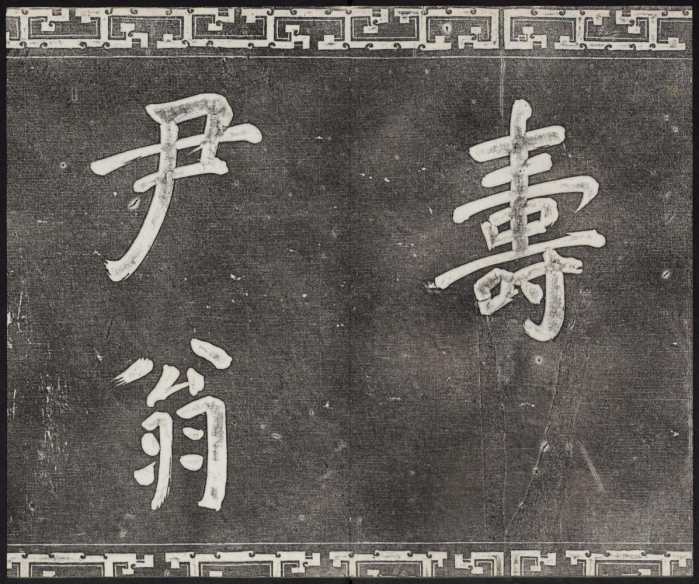 壽
尹翁